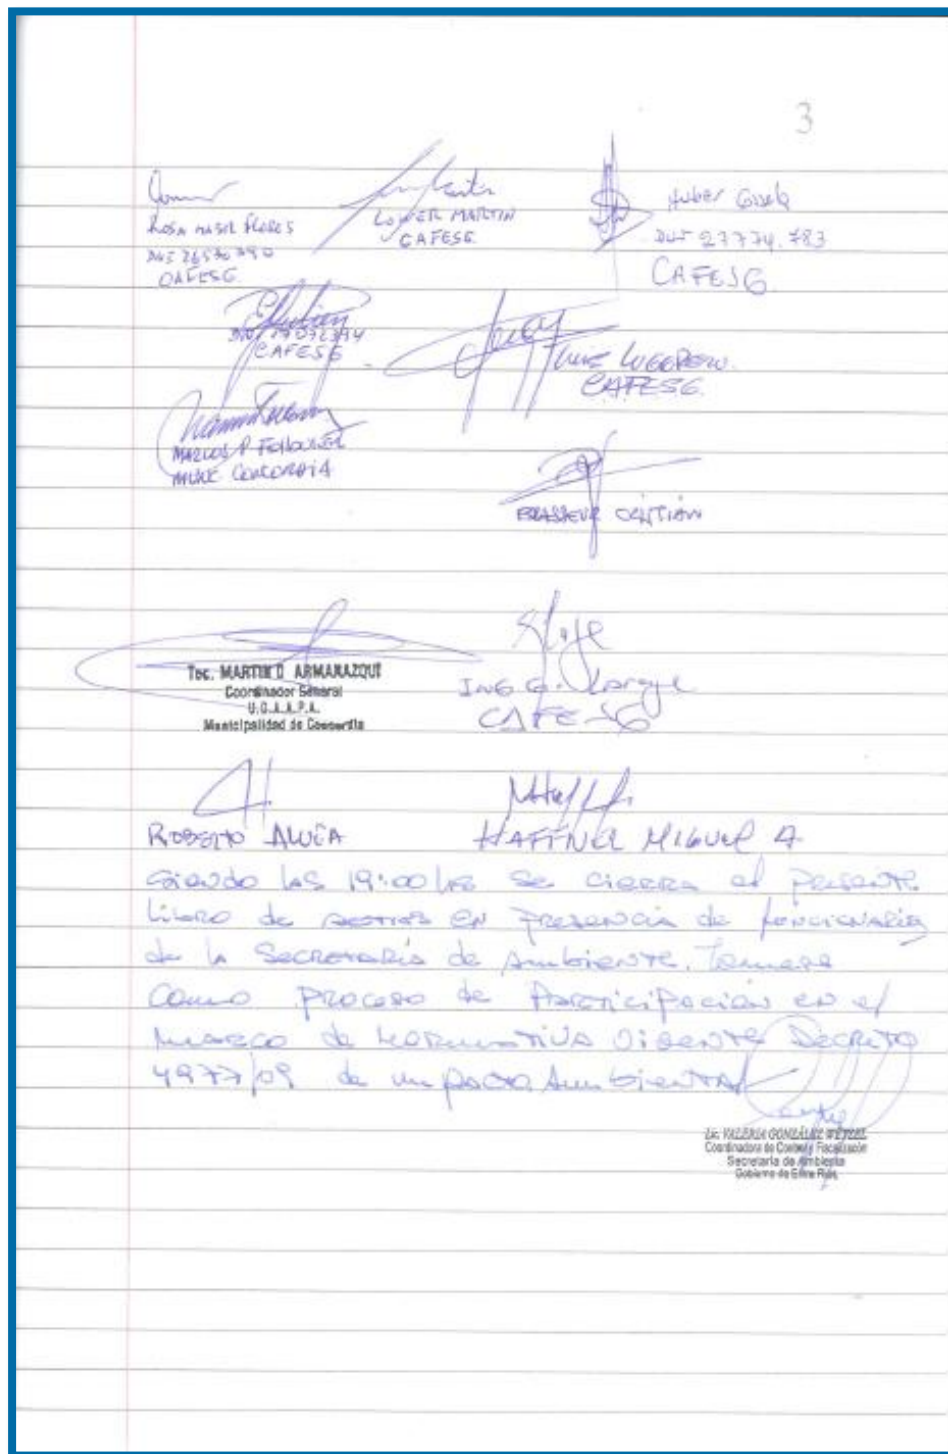 3
LOWER MARTIN
CAFESG
Huber Gisela
DNI 27774.783
CAFESG
ROSA
DNI
CAFESG
CAFESG
CAFESG
MARCOS P
MUNC CONCORDIA
BRASSEUR CRISTIAN
Tec. MARTIN D ARMANAZQUI
Coordinador General
U.G.A.A.P.A.
Municipalidad de Concordia
ING G.
CAFESG
ROBERTO
HAFFNER MIGUEL A
siendo las 19:00 hs se cierra el presente
libro de actas en presencia de funcionarios
de la Secretaría de Ambiente.
como proceso de Participación en el
marco de Normativa Vigente Decreto
4977/09 de impacto Ambiental
Lic. VALERIA GONZÁLEZ WETZEL
Coordinadora de Control y Fiscalización
Secretaría de Ambiente
Gobierno de Entre Ríos